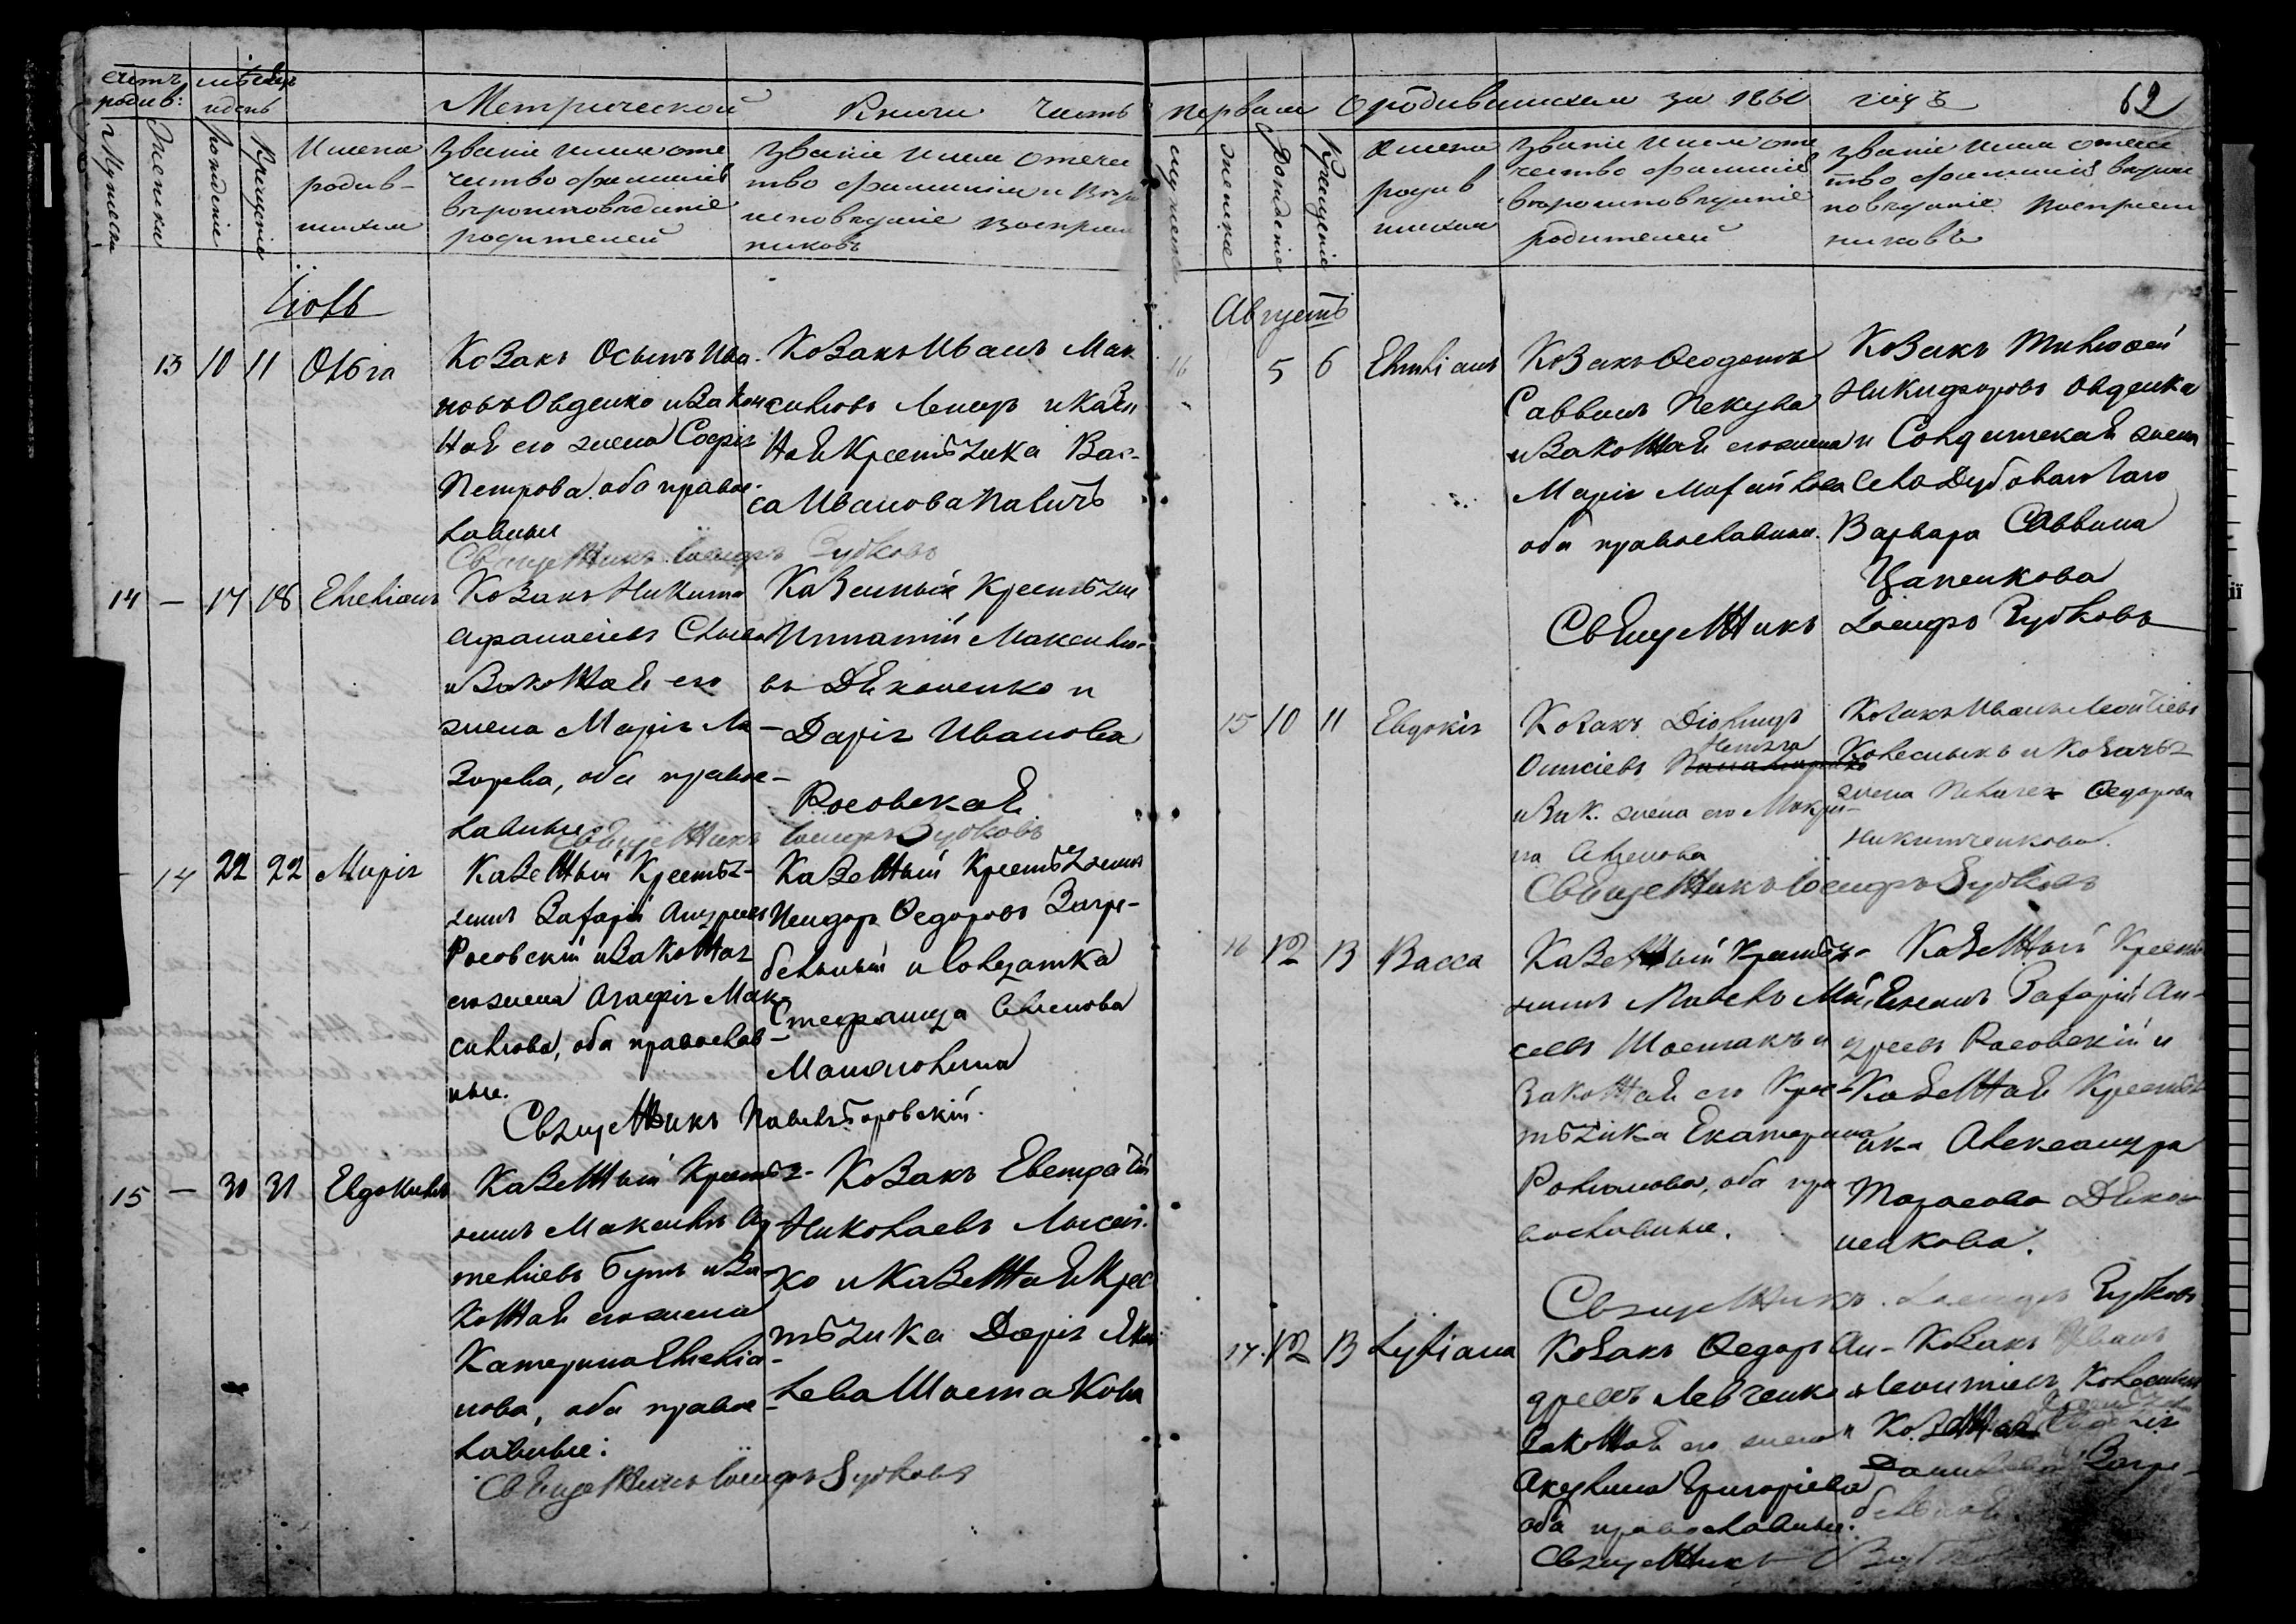 счетъ родив: мѣсяцъ идень
Метрической Книги Часть
Мужеска
Женска
Рожденіе
Крещеніе
Имена родив-шихся
Званіе имя оте
чество фамилія
вѣроисповѣданіе
родителей
Званіе имя отече
тво фамилія и Вѣро
исповѣданіе Воспріем
никовъ
Іюль
13 10 11 Ольга
Козакъ Осыпъ Ива
новъ Овденко и Закон
ная его жена Софія
Петрова оба правос
лавныя
Козакъ Иванъ Мак
симовъ и Казен
ная Крестьянка Вас-
са Иванова
Священникъ Іосифъ Зубковъ
14 — 17 18 Емеліанъ
Козакъ Никита
Афанасіевъ
и Законная его
жена Марія Ла-
зарева, оба правос-
лавные
Казенный Крестьян
Игнатій Максимо-
въ Дяконенко и
Дарія Иванова
Росовская
Священникъ Іосифъ Зубковъ
14 22 22 Марія
Казенный Кресть-
янинъ Захарій Андреевъ
Росовскій и Законная
его жена Агафія Мак-
симова, оба православ-
ные.
Казенный Крестьянинъ
Федоровъ Загре-
бельный и Солдатка
Стефанида Семенова
Священникъ Павелъ Боровскій.
15 — 30 31 Евдокимъ
Казенный Крестья-
нинъ Максимъ
Бутъ и За-
конная его жена
Катерина Емеліа-
нова, оба правос-
лавные:
Козакъ Евстратій
Николаевъ Лысен-
ко и Казенная Крес
тьянка Дарія
Шостакова
Священникъ Іосифъ Зубковъ
первая О родившихся за 1860 годъ
62
мужеска
женска
Рожденіе
Крещеніе
Имена
родив
шихся
Званіе имя оте
чество фамилія
вѣроисповѣданіе
родителей
Званіе имя отече
тво фамилія вѣроис
повѣданіе Воспріем
никовъ
Августъ
16 5 6 Емиліанъ
Козакъ Феодотъ
Саввинъ Пекуна
и Законная его жена
Марія
оба православныя.
Козакъ Тимофей
Никифоровъ Овденка
и Солдатская жена
Села Дубоваго
Варвара Саввина
Цапенкова
Священникъ Іосифъ Зубковъ
15 10 11 Евдокія
Козакъ Діомидъ
Онисіевъ
и Зак. жена его Макри-
на Семенова
Козакъ Иванъ Леонтіевъ
Колесникъ и Козачья
жена Пелагея Федорова
Никитченкова.
Священникъ Іосифъ Зубковъ
16 12 13 Васса
Казенный Крестья-
нинъ Павелъ Мои-
сеевъ Шостакъ и
Законная его Крес-
тьянка Екатерина
Романова, оба пра
вославные.
Казенный Крестья
нинъ Захарій Ан-
дреевъ Росовскій и
Казенная Крестья
нка Александра
Тарасова Дяко
ненкова.
Священникъ Іосифъ Зубковъ
17. 12 13 Луkіана
Козакъ Федоръ Ан-
дреевъ Левченко и
Законная его жена
Акулина Григоріева
оба православные.
Козакъ Иванъ
Леонтіевъ Колесникъ
и Казенная
Загре-
бельная
Священникъ